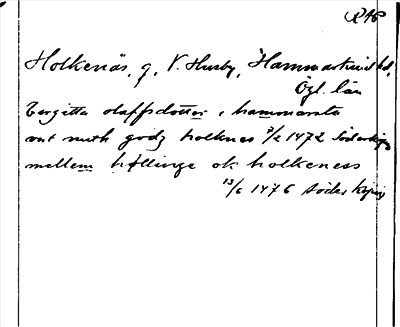 RAP
Holkenäs, g, V. Husby, Hammarkind hd,
Ögl. län
Bergitta olaffsdotter i hammarsta
mt noth godz holknes 7/2 1472 Söderköping
mellem hællinge ok holkeness
13/6 1476 Söderköping